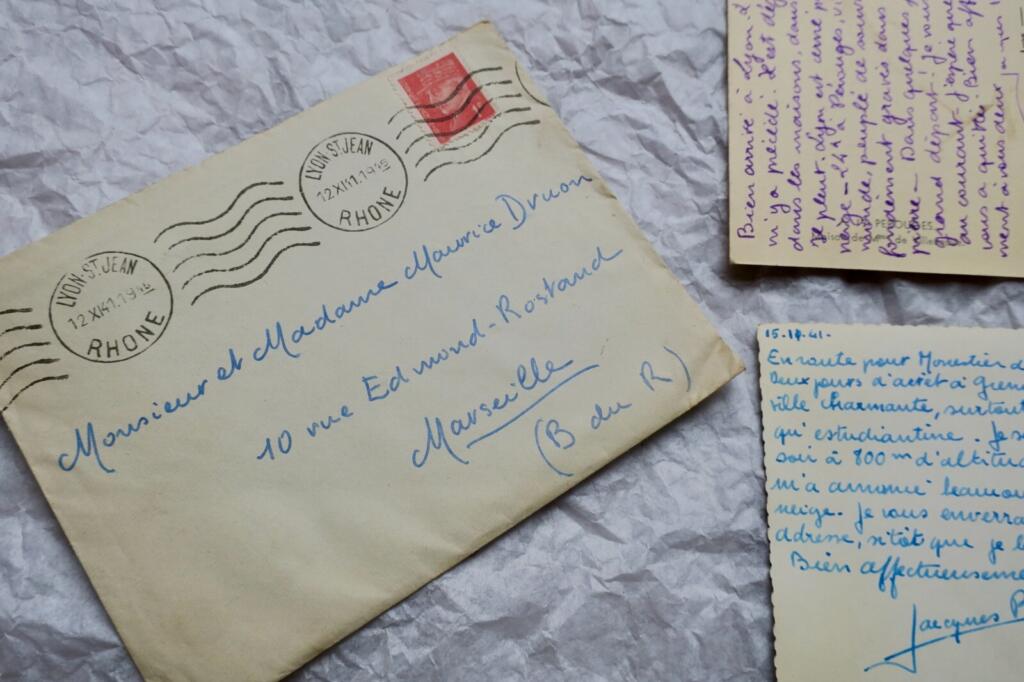 LYON-ST JEAN
12 XII 41.19
RHONE
LYON-ST JEAN
12 XII 41.19
RHONE
Monsieur et Madame Maurice Druon
10 rue Edmond-Rostand
Marseille
(B du R)
Bien arrivé à Lyon
m'y a précédé. C'est
dans les maisons, dans
Il pleut. Lyon est une
neige - 24 à Pérouges, vi
vide, peuplé de souv
fondément gravés dans
moire - Dans quelques
grand départ. Je vous
au courant. J'espère que
vous a quitté. Bien aff
ment à vous deux
Jacques
PEROUGES
15-12-41-
En route pour Monestier d
Deux jours d'arrêt à Gren
ville charmante, surtout
qu'estudiantine. Je s
soir à 800m d'altitu
m'a annoncé beaucou
neige. Je vous enverra
adresse, sitôt que je l
Bien affectueuseme
Jacques B